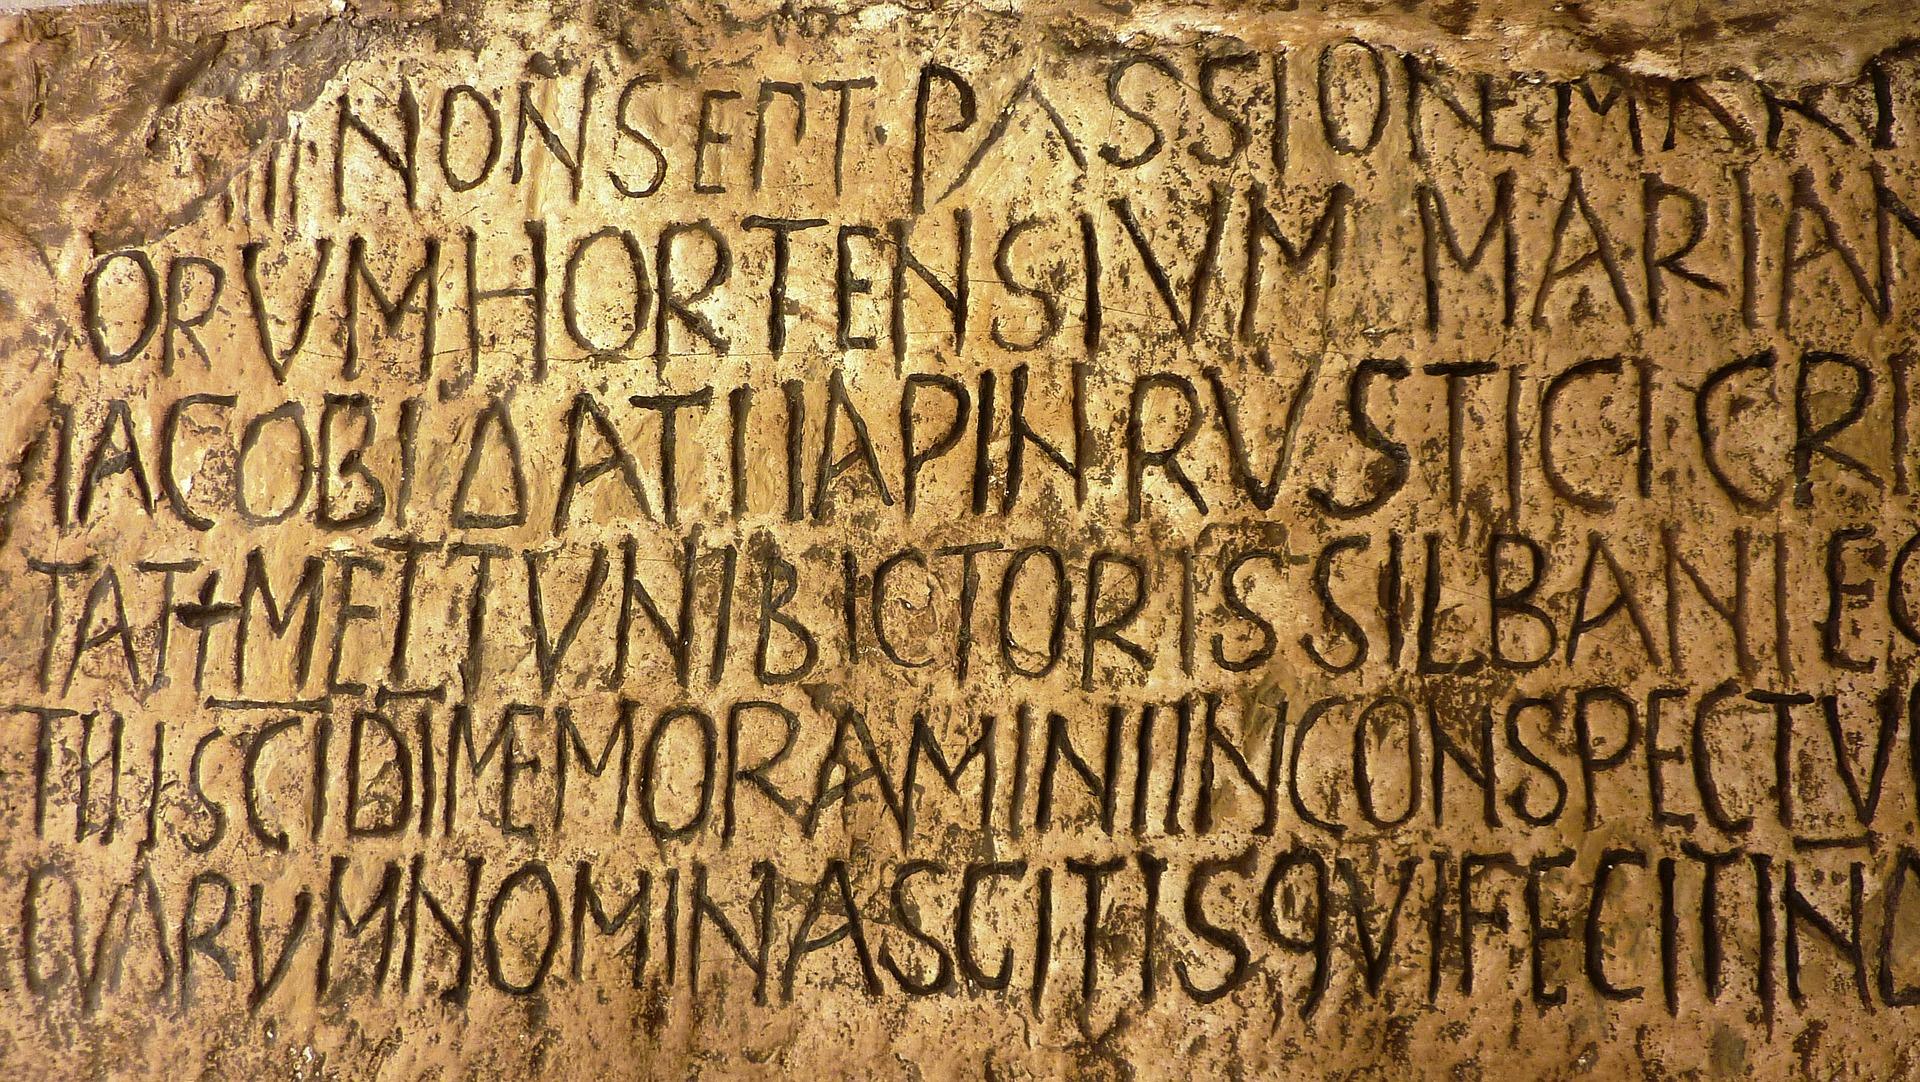 IIII NON SEPT·PASSIONE MART
ORVM HORTENSIVM MARIAN
IACOBI ΔATI IAPIN RVSTICI CRI
TAT+ METTVNI BICTORIS SILBANI EG
TII SCI DI MEMORAMINI IN CONSPECTV
QVARVM NOMINA SCITIS QVI FECIT IND